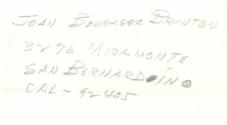 JOAN BOURASSA BRINTON
3296 MIRAMONTE
SAN BERNARDINO
CAL - 92405